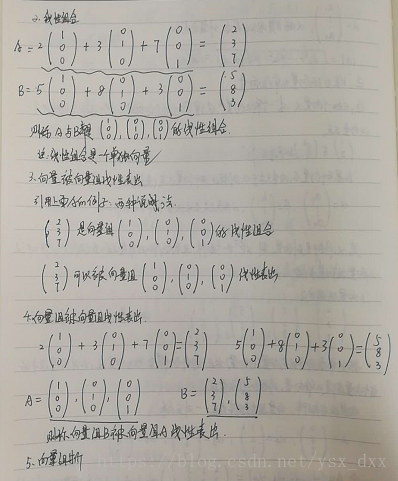 2. 线性组合
A = 2(1 0 0) + 3(0 1 0) + 7(0 0 1) = (2 3 7)
B = 5(1 0 0) + 8(0 1 0) + 3(0 0 1) = (5 8 3)
则称 A与B是 (1 0 0), (0 1 0), (0 0 1) 的线性组合.
注: 线性组合是一个单独向量
3. 向量被向量组线性表出
引用上面的例子. 两种说法.
(2 3 7) 是向量组 (1 0 0), (0 1 0), (0 0 1) 的线性组合
(2 3 7) 可以被向量组 (1 0 0), (0 1 0), (0 0 1) 线性表出
4. 向量组被向量组线性表出.
2(1 0 0) + 3(0 1 0) + 7(0 0 1) = (2 3 7) 5(1 0 0) + 8(0 1 0) + 3(0 0 1) = (5 8 3)
A = (1 0 0), (0 1 0), (0 0 1) B = (2 3 7), (5 8 3)
则称向量组B被向量组A线性表出.
5. 向量组
https://blog.csdn.net/ysx_dxx